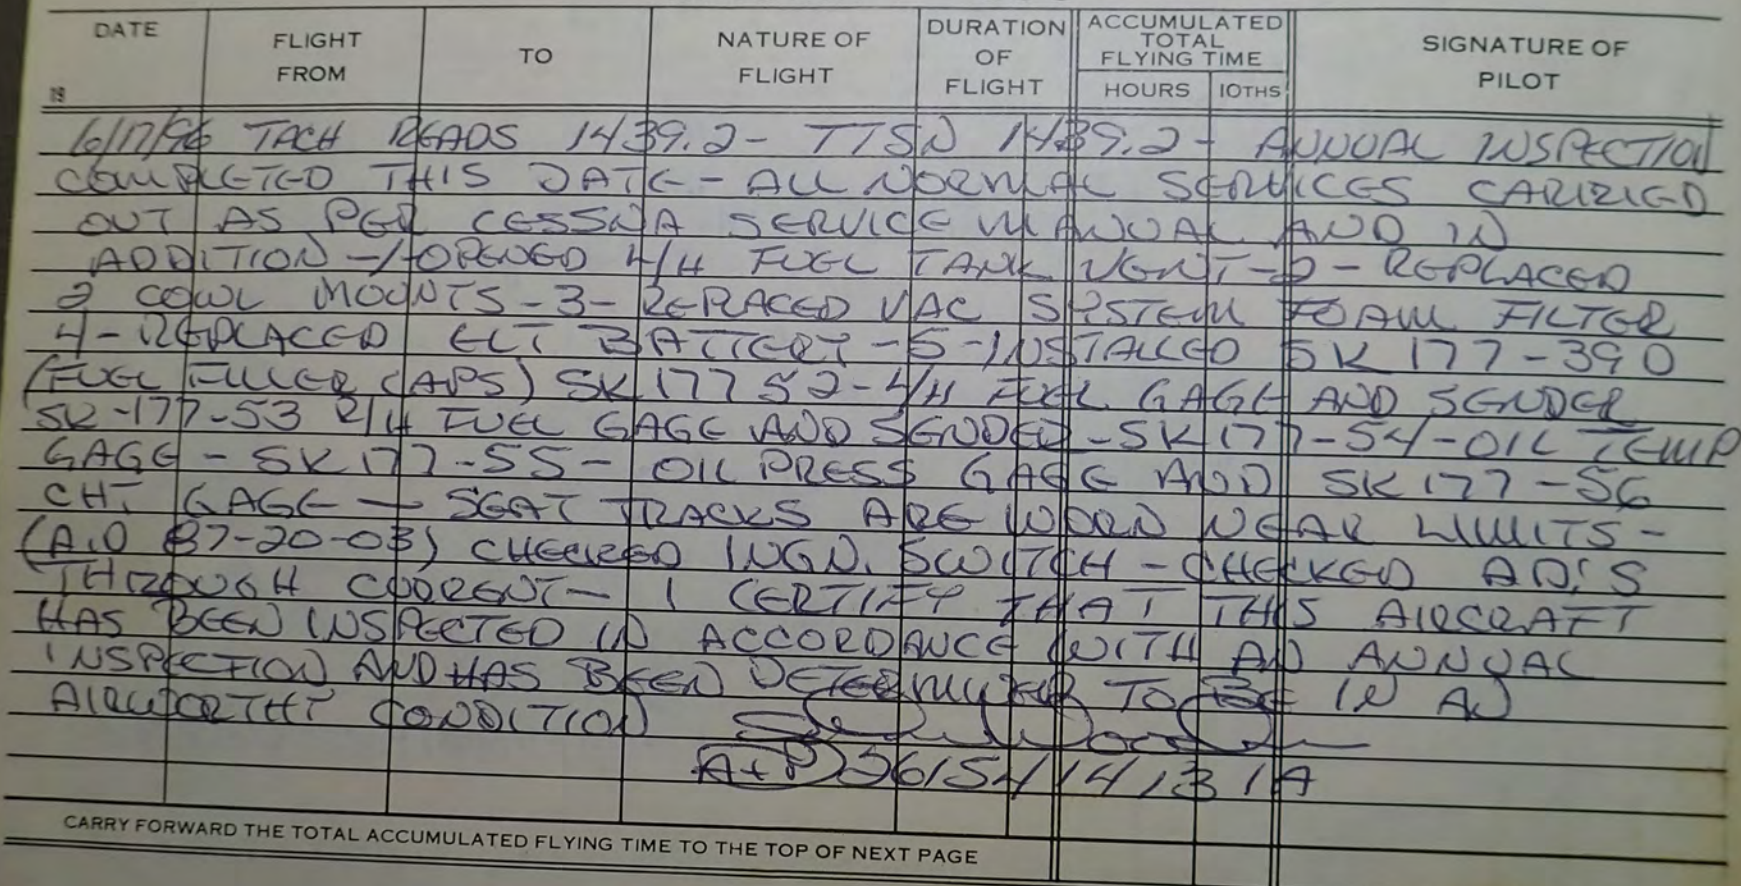 DATE
19
FLIGHT
FROM
TO
NATURE OF
FLIGHT
DURATION
OF
FLIGHT
ACCUMULATED
TOTAL
FLYING TIME
HOURS 10THS
SIGNATURE OF
PILOT
6/17/96 TACH READS 1439.2 - TTSN 1439.2 - ANNUAL INSPECTION
COMPLETED THIS DATE - ALL NORMAL SERVICES CARRIED
OUT AS PER CESSNA SERVICE MANUAL AND IN
ADDITION -1- OPENED L/H FUEL TANK VENT -2- REPLACED
2 COWL MOUNTS -3- REPLACED VAC SYSTEM FOAM FILTER
4- REPLACED ELT BATTERY -5- INSTALLED SK 177-390
(FUEL FILLER CAPS) SK 177 52 - L/H FUEL GAGE AND SENDER
SK-177-53 R/H FUEL GAGE AND SENDER - SK 177-54 - OIL TEMP
GAGE - SK 177-55 - OIL PRESS GAGE AND SK 177-56
CHT GAGE — SEAT TRACKS ARE WORN NEAR LIMITS -
(A.D 87-20-03) CHECKED IGN. SWITCH - CHECKED AD'S
THROUGH CURRENT - I CERTIFY THAT THIS AIRCRAFT
HAS BEEN INSPECTED IN ACCORDANCE WITH AN ANNUAL
INSPECTION AND HAS BEEN DETERMINED TO BE IN AN
AIRWORTHY CONDITION
A+P
CARRY FORWARD THE TOTAL ACCUMULATED FLYING TIME TO THE TOP OF NEXT PAGE